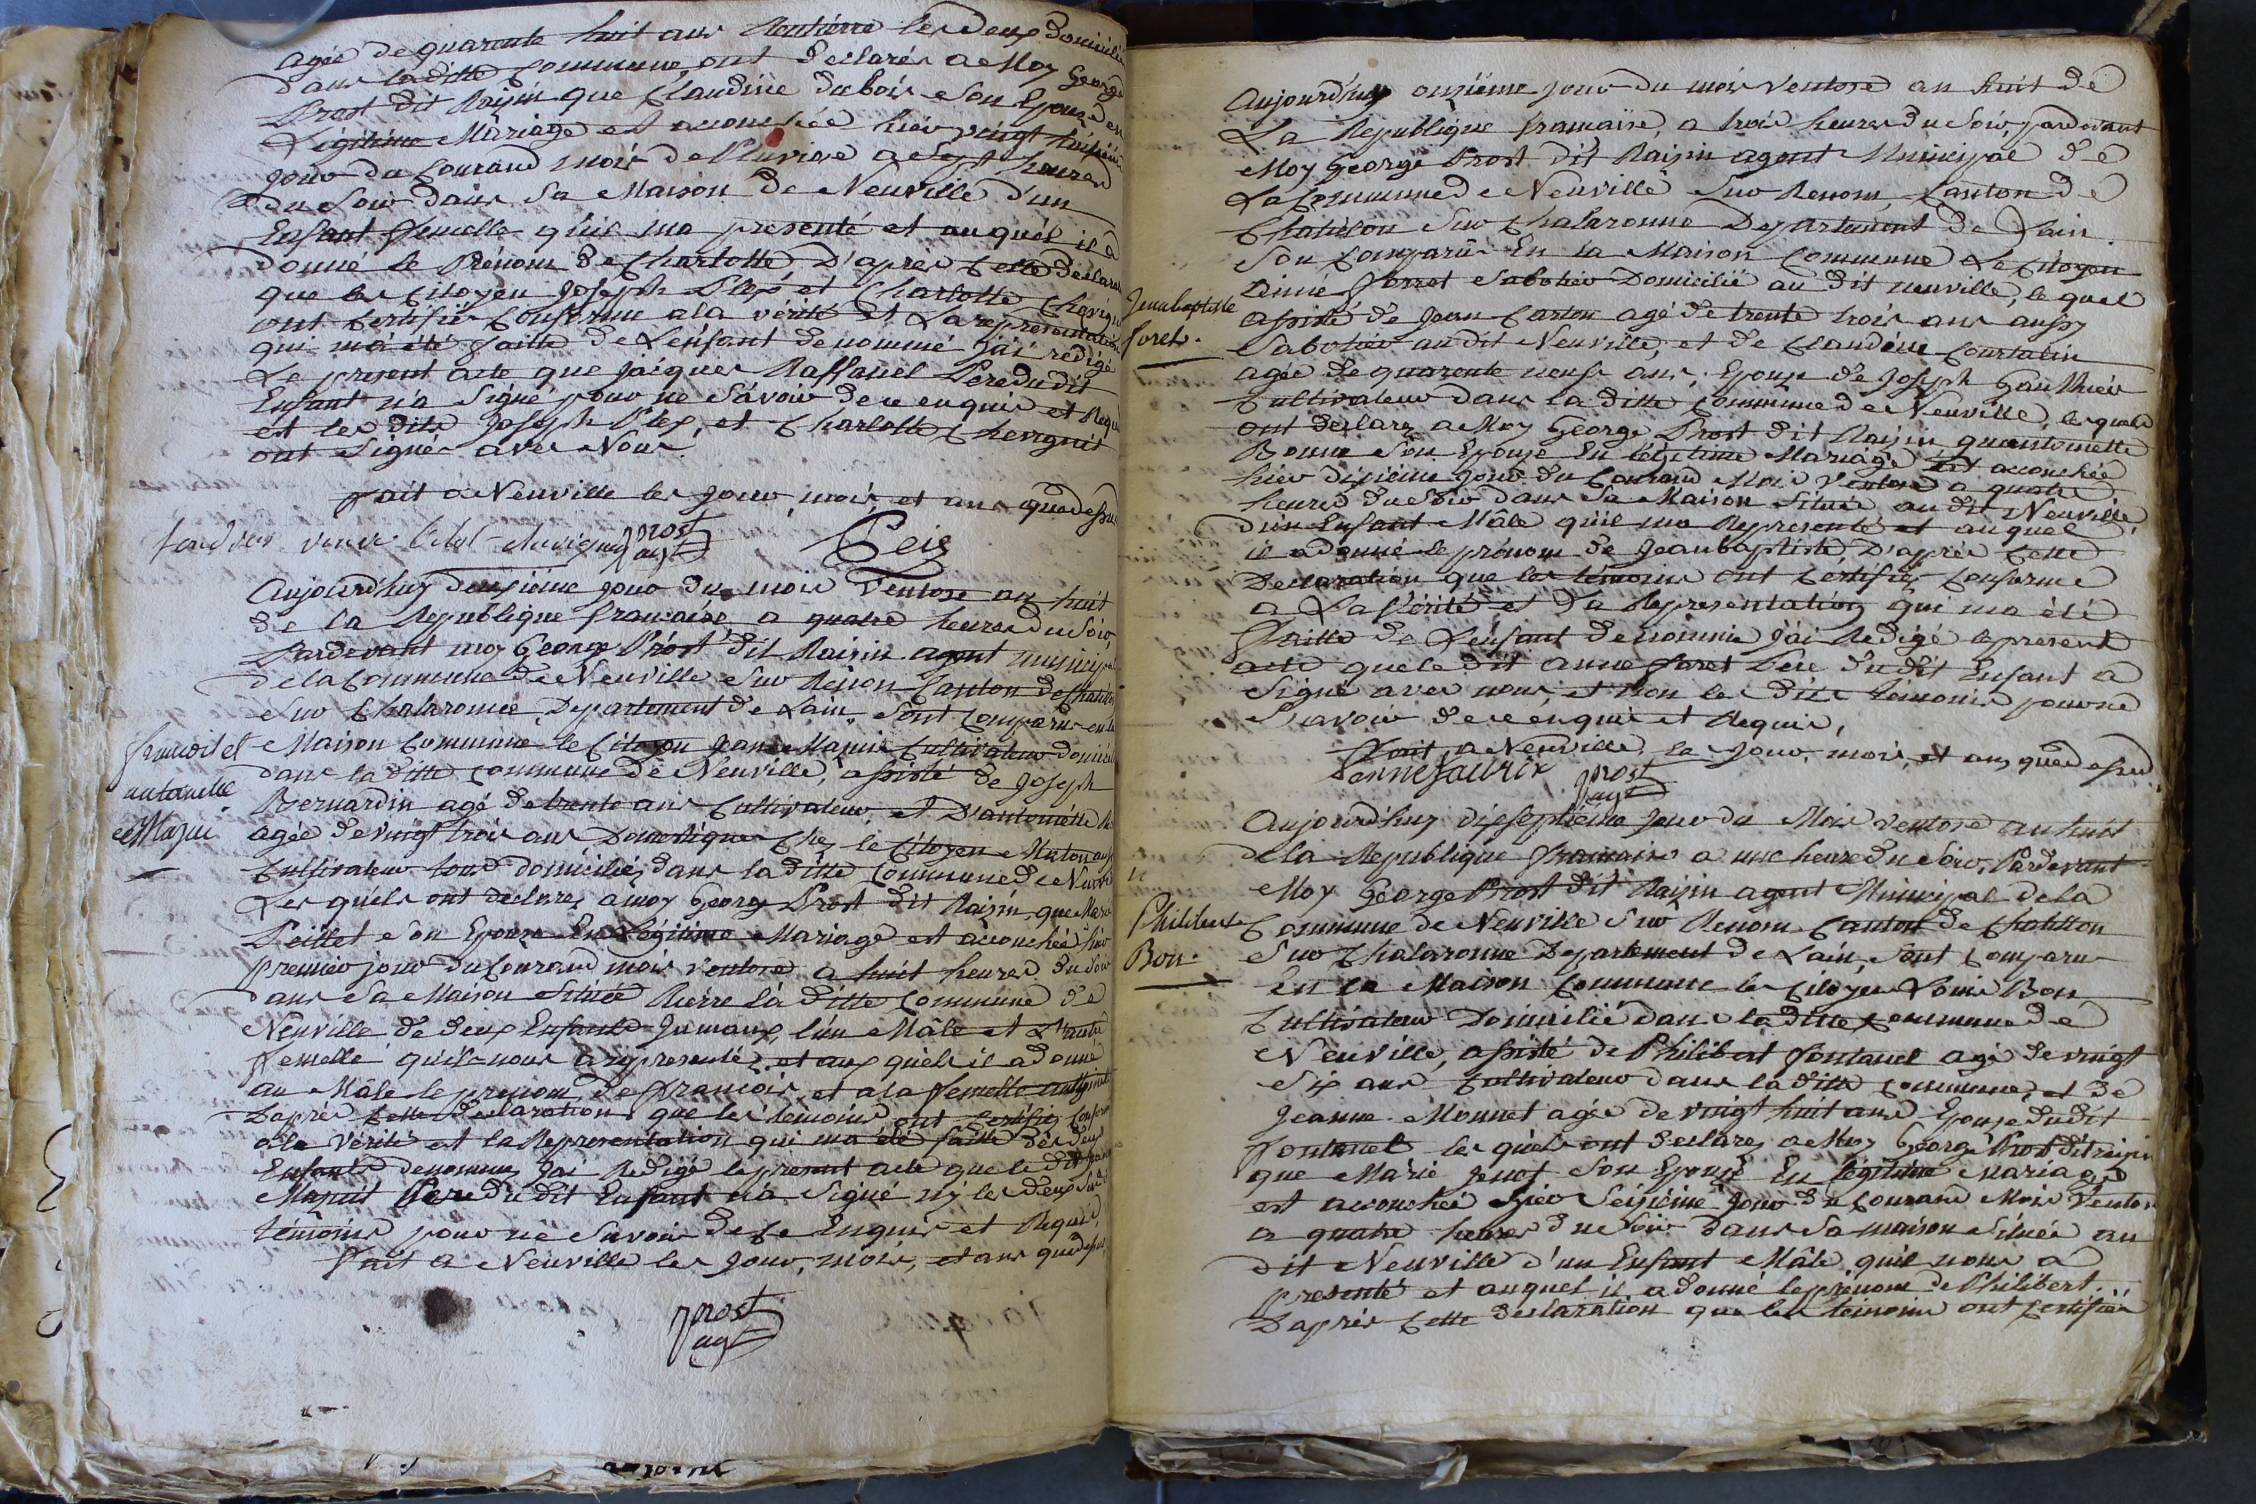 agée de quarente huit ans Rentiere les deux domicilié
dans la ditte Commune, ont declarés a Moy George
Prost dit Raisin que Claudine dubois Son Epouse en
Légitime Mariage est accouchée hiér vingt huitieme
jour du Courand mois de Pluviose a Sept heures
du Soir dans Sa Maison de Neuville d'un
Enfant femelle qu'il ma presenté et au quél il a
donné le Prénom de Charlotte, D'après Cette declara
que les Citoyen Joseph et Charlotte Chevign
ont Certifié Conforme a la vérité et La representation
qui ma été faitte de Lenfant denommé j'ai rédigé
Le présent acte que jaiques Raffanel Pere du dit
Enfant n'a Signé pour ne Sávoir de ce enquis et Requ
et les dits Joseph et Charlotte Chevignit
ont Signé avec Nous
fait a Neuville les Jour, mois, et ans que dessus
prost
agt
Aujourd'huy deuxiéme jour du mois Ventose an huit
de la Republique francaise a quatre heures du Soir,
Pardevant moy George Próst dit Raisin agent municip
de la Commune de Neuville Sur Renon Canton de Chatill
Sur Chalaronne, Departement de Lain, Sont Comparus en la
francois et
antoinette
Mazui
Maison Commune le Citoyen Jean Mazuit Cultivateur domicili
dans la ditte Commune de Neuville, assisté de Joseph
Bernardin agé de trente ans Cultivateur, et D'antoinétte
agée de vingt trois ans Domestique Chez le Citoyen
Cultivateur tous domiciliés dans la ditte Commune de Neuvil
Les quéls ont declarez a moy George Prost dit Raisin, que Marie
Peillet Son Epouse En Légitime Mariage est accouchée hiér
premier jour du Courand mois Ventose a huit heures du Soir
dans Sa Maison Située Riére la ditte Commune de
Neuville de deux Enfants Jumaux, l'un Mâle et L'autre
femelle qu'il nous a representés, et aux quéls il a donné
au Mâle le prenom de francois, et a la femelle
D'après Cette declaration que les témoins ont Certifiés Conform
a la vérité et la Representation qui ma été faitte des deux
Enfants denommez Jai Redigé le present acte que le dit
Mazuit Pere du dit Enfant n'a Signé ny les deux
témoins pour ne Savoir de Ce Enquis et Requis,
fait a Neuville les Jour, mois, et ans que dessus
prost
agt
Aujourd'huy onziéme jour du mois Ventose an huit de
La République francaise, a trois heures du Soir, pardevant
Moy George Prost dit Raisin agent Municipal de
La Commune de Neuville Sur Renom, Canton de
Chatillon Sur Chalaronne Departement de Lain
Son Comparû En la Maison Commune Le Citoyen
Jean baptiste
foret.
Aimé Forret Sabotier Domicilié au dit neuville, le quel
assisté de Jean Carton agé de trente trois ans aussy
Sabotier au dit Neuville, et de Claudine Courtalin
agée de quarente neuf ans, Epouse de Joseph Gauthiér
Cultivateur dans la ditte Commune de Neuville, les quels
ont declarez a Moy George Prost dit Raisin qu'antoinette
Bonne Son Epouse En légitime Mariage est accouchée
hiér dixiéme jour du Courand Mois Ventose a quatre
heures du Soir dans Sa Maison Situé au dit Neuville
d'un Enfant Mâle qu'il ma Representé et au quel
il a donné le prénom de Jean baptiste, D'apres Cette
Declaration que les témoins ont Cértifiés Conforme
a La Vérité et La Representation qui ma été
faitte de Lenfant denommé J'ai Redigé le present
acte que le dit foret Pere du dit Enfant a
Signé avec nous, et Non les dits témoins pour ne
Savoir de ce enquis et Requis,
Fait a Neuville les Jour, mois, et ans que dessus
prost
agt
Aujourd'huy dix septiéme jour du Mois ventose an huit
de la Republique francaise a une heure du Soir, Pardevant
Moy George Prost dit Raisin agent Municipal de la
Philibert
Bon.
Commune de Neuville Sur Renom Canton de Chatillon
Sur Chalaronne Departement de Lain, Sont Comparu
En la Maison Commune le Citoyen Louis Bon
Cultivateur Domicilié dans la ditte Commune de
Neuville, assisté de Philibert fontanel agé de vingt
Six ans Cultivateur dans la ditte Commune, et de
Jeanne Monnet agée de vingt huit ans Epouse du dit
fontanel les quels ont declarez a Moy George Prost dit raisin
que Marie Son Epouse En légitime Mariage
est accouchée Hiér Seiziéme Jour du Courand Mois Ventos
a quatre heures du Soir dans Sa maison Située au
dit Neuville d'un Enfant Mâle qu'il nous a
presenté et auquel il a donné le prénom de Philibert
D'après Cette declaration que les témoins ont Certifiér